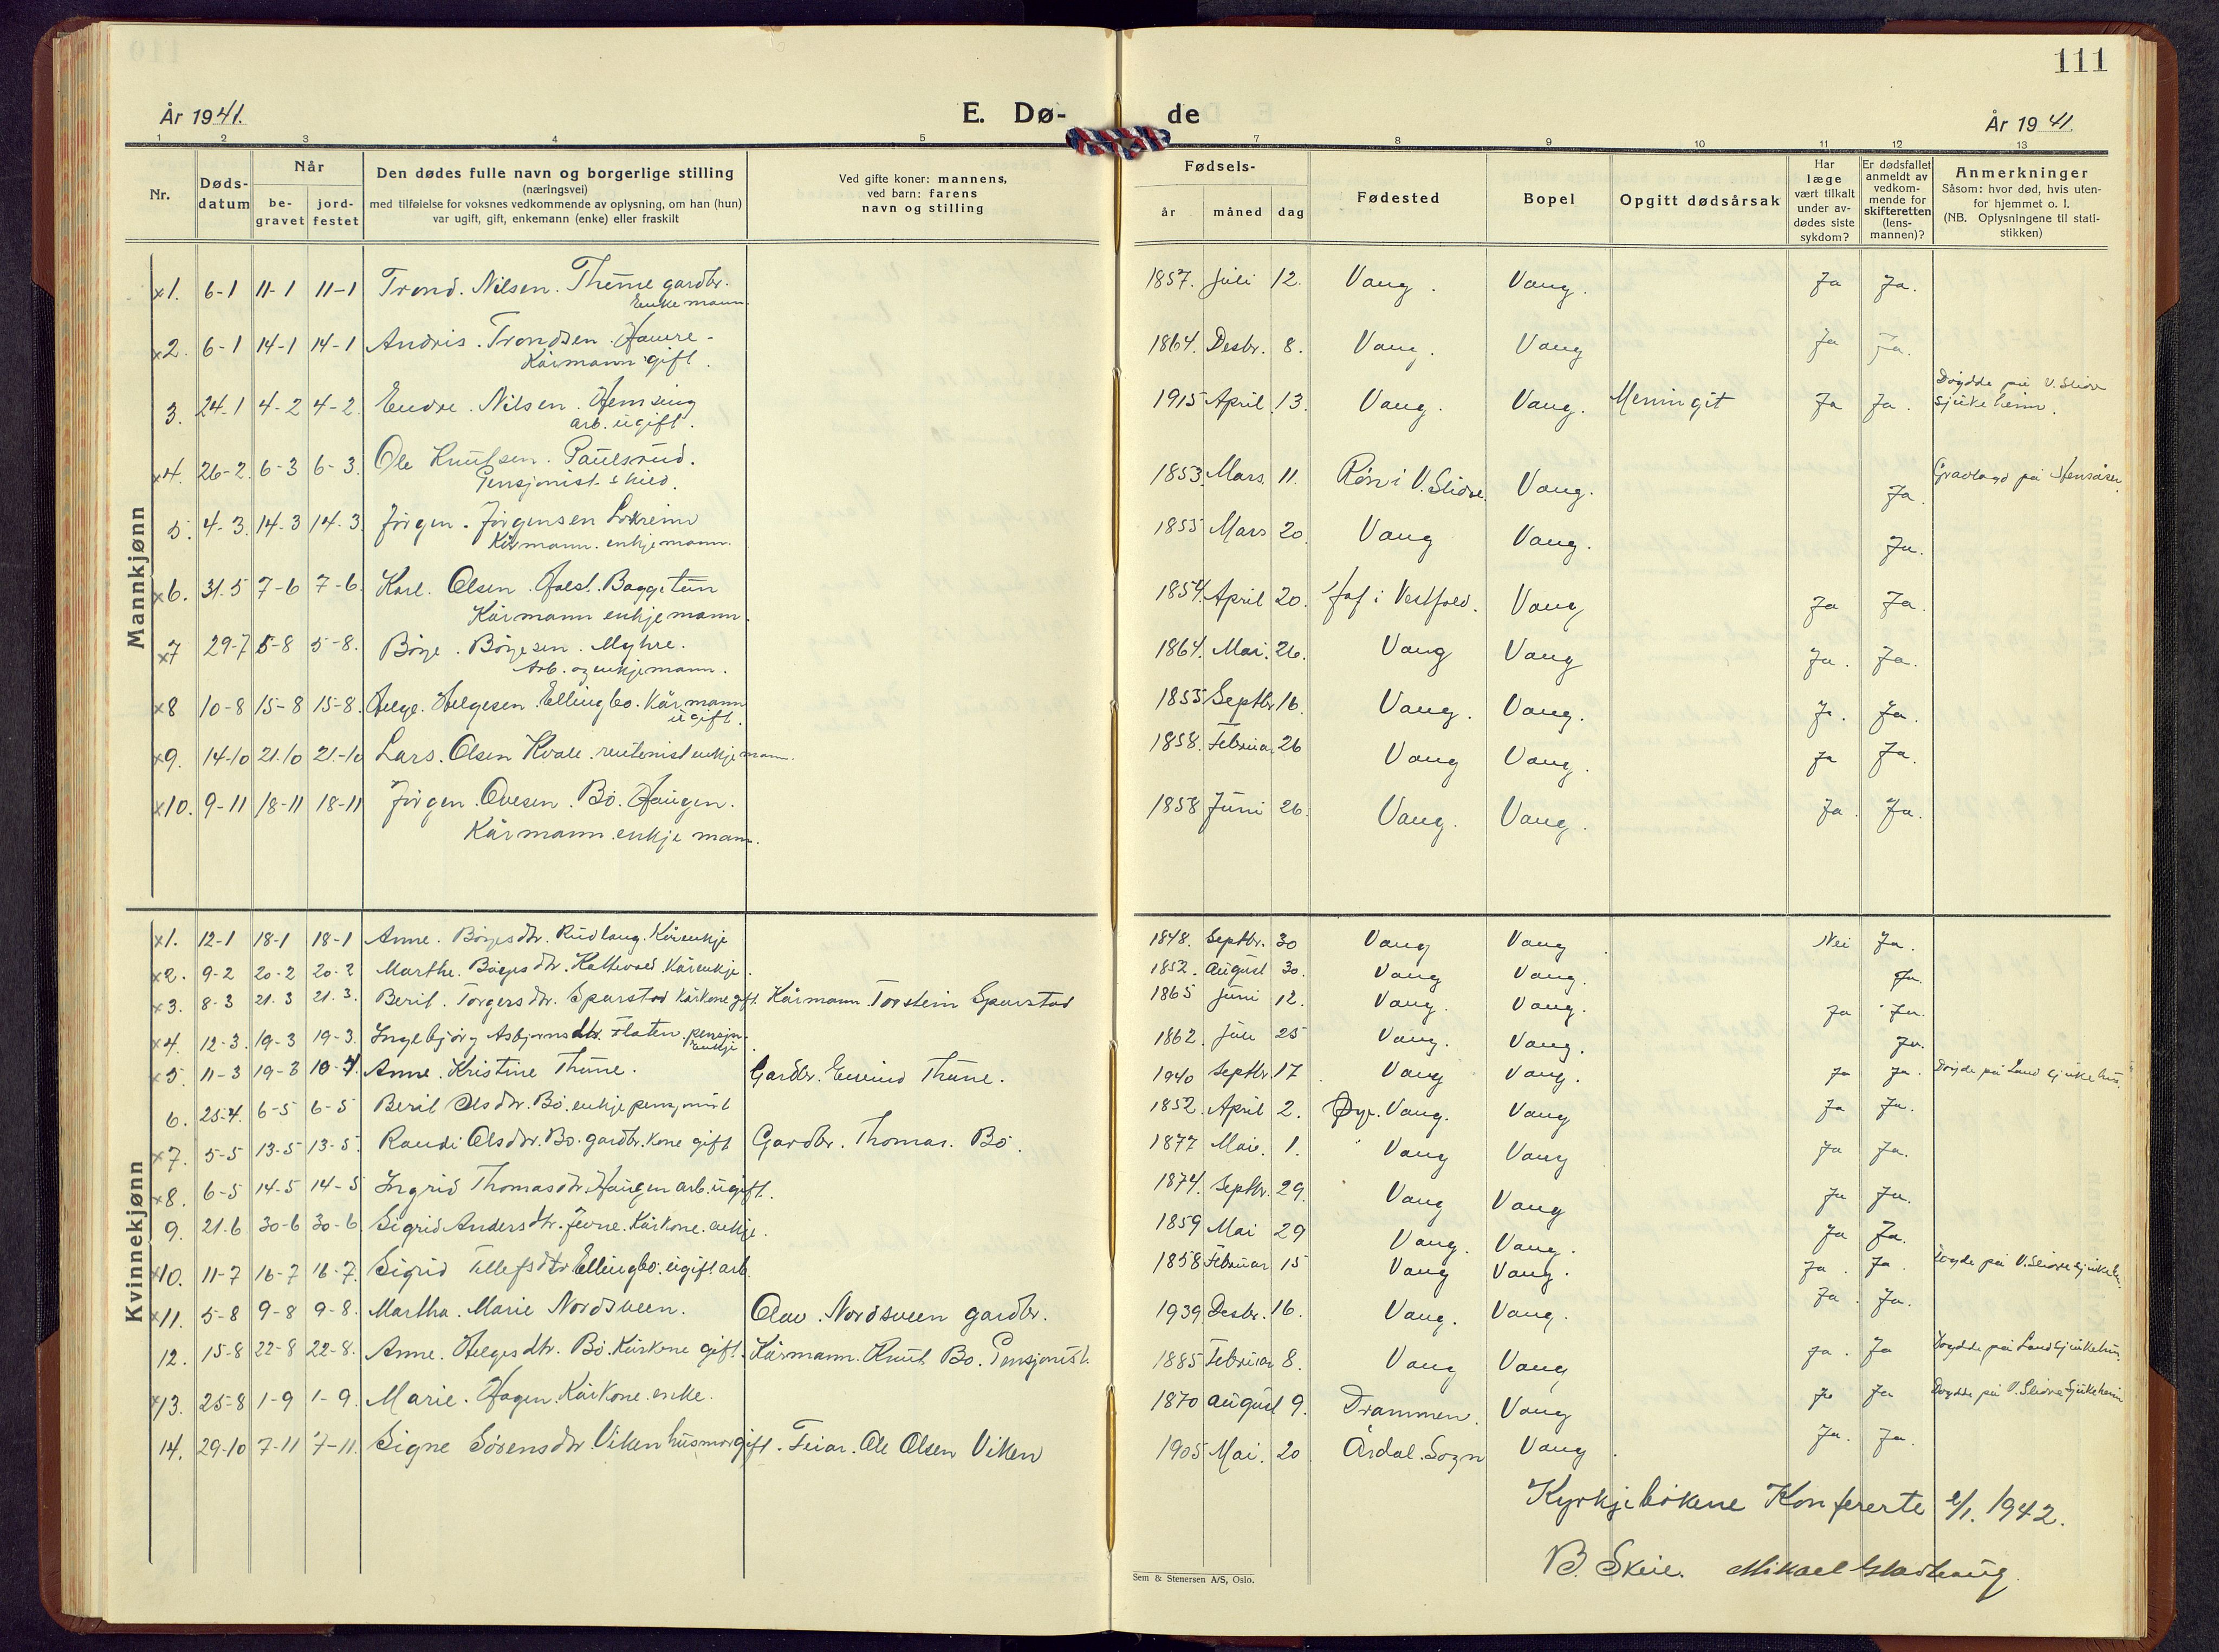 111
År 1941.
E. Dø-
de
År 1941.
1 2 3 4 5 7 8 9 10 11 12 13
Nr.
Døds-
datum
Når
be-
gravet
jord-
festet
Den dødes fulle navn og borgerlige stilling
(næringsvei)
med tilføielse for voksnes vedkommende av oplysning, om han (hun)
var ugift, gift, enkemann (enke) eller fraskilt
Ved gifte koner: mannens,
ved barn: farens
navn og stilling
Fødsels-
år
måned
dag
Fødested
Bopel
Opgitt dødsårsak
Har
læge
vært tilkalt
under av-
dødes siste
sykdom?
Er dødsfallet
anmeldt av
vedkom-
mende for
skifteretten
(lens-
mannen)?
Anmerkninger
Såsom: hvor død, hvis uten-
for hjemmet o. l.
(NB. Oplysningene til stati-
stikken)
Mannkjønn
x1. 6-1 11-1 11-1 Trond. Nilsen. Thune gardbr. 1857. Juli 12. Vang. Vang. Ja Ja.
Enkemann.
x2. 6-1 14-1 14-1 Andris. Trondsen. Haure. 1864. Desbr. 8. Vang. Vang Ja Ja.
Kårmann gift.
3. 24-1 4-2 4-2 Endre. Nilsen. Hemsing 1915 April 13. Vang. Vang. Meningit Ja Ja. Døydde på V. Slidre
arb. ugift. sjukeheim.
x4. 26-2 6-3 6-3. Ole Knutsen. Paulsrud. 1853. Mars. 11. Røn i V. Slidre. Vang. Ja. Gravlagd på Hensåsen.
Pensjonist skild.
5. 4-3. 14-3 14-3. Jörgen. Jörgensen Lokreim 1855 Mars 20. Vang Vang. Ja.
Kårmann. enkjemann.
x6. 31.5 7-6 7-6. Karl. Olsen. Baggetun 1854. April 20. Hof i Vestfold. Vang Ja Ja.
Kårmann enkjemann.
x7 29-7 5-8 5-8. Börge. Börgesen. Myhre. 1864. Mai. 26. Vang Vang Ja. Ja.
Arb. og enkjemann.
x8 10-8 15-8 15-8. Helge. Helgesen. Ellingbo. Kårmann 1855 Septbr 16. Vang. Vang. Ja. Ja.
ugift.
x9. 14-10 21.10 21-10 Lars. Olsen Kvale. rentenist enkjemann. 1858. Februa. 26 Vang Vang. Ja Ja.
x10. 9-11 18-11 18-11 Jörgen. Ovesen. Bö. Haugen. 1858 Juni 26. Vang. Vang. Ja. Ja.
Kårmann. enkjemann.
Kvinnekjønn
x1. 12-1 18-1 18-1 Anne. Börgesdtr. Rudlang. Kårenkje 1848. Septbr. 30 Vang Vang Nei Ja.
x2. 9-2 20-2 20-2 Marthe. Börgesdtr. Kattevold. Kårenkje. 1852. August 30. Vang Vang. Ja.
x3. 8-3 21.3 21.3. Berit. Torgersdtr. Spurstad kårkone gift. Kårmann. Torstein Spurstad 1865 Juni 12. Vang. Vang. Ja Ja.
x4. 12-3. 19-3 19-3. Ingebjörg Asbjørnsdtr. Flaten. pensjn. 1862. Juli 25 Vang. Vang. Ja.
enkje
x5. 11-3 19-3 19-4. Anne. Kristine Thune. Gardbr. Eivind Thune. 1940 Septbr. 17. Vang Vang. Ja Ja. Døyde på Land sjukehus.
6. 25.4. 6-5 6-5 Berit Olsdtr. Bö. enkje pensjonist 1852. April 2. Øye. Vang. Vang Ja Ja.
x7. 5-5 13-5 13-5. Randi Olsdtr. Bö. gardbr. kone gift Gardbr. Thomas. Bö. 1877 Mai. 1. Vang Vang Ja Ja.
x8. 6-5 14.5 14-5 Ingrid Thomasdtr. Haugen arb. ugift. 1874. Septbr. 29. Vang Vang Ja Ja.
9. 21-6 30-6 30-6. Sigrid Andersdtr. Jevne. Kårkone. enkje. 1859 Mai 29 Vang. Vang. Ja Ja.
x10. 11-7 16-7 16-7. Sigrid Tellefsdtr Ellingbo. ugift arb. 1858 Februar 15 Vang Vang. Ja. Ja. Døyde på V. Slidre sjukeh.
x11. 5-8 9-8 9-8. Martha. Marie Nordsveen. Olav. Nordsveen gardbr. 1939 Desbr. 16. Vang. Vang. Ja. Ja.
12. 15-8 22-8 22-8. Anne. Helgesdtr. Bö. Kårkone gift. Kårmann. Knut Bö. Pensjonist. 1885 Februar 8. Vang Vang Ja. Ja Døydde på Land sjukehus.
x13. 25-8 1-9 1-9. Marie. Hagen. Kårkone. enke. 1870 August 9. Drammen. Vang Ja Ja Døydde på V. Slidre Sjukeheim
14. 29-10 7-11 7-11. Signe Sörensdtr. Viken husmor gift. Feiar. Ole Olsen Viken 1905 Mai. 20 Årdal. Sogn Vang. Ja. Ja.
Kyrkjebökene Konfererte 2/1. 1942.
B. Skeie.
Sem & Stenersen A/S, Oslo.